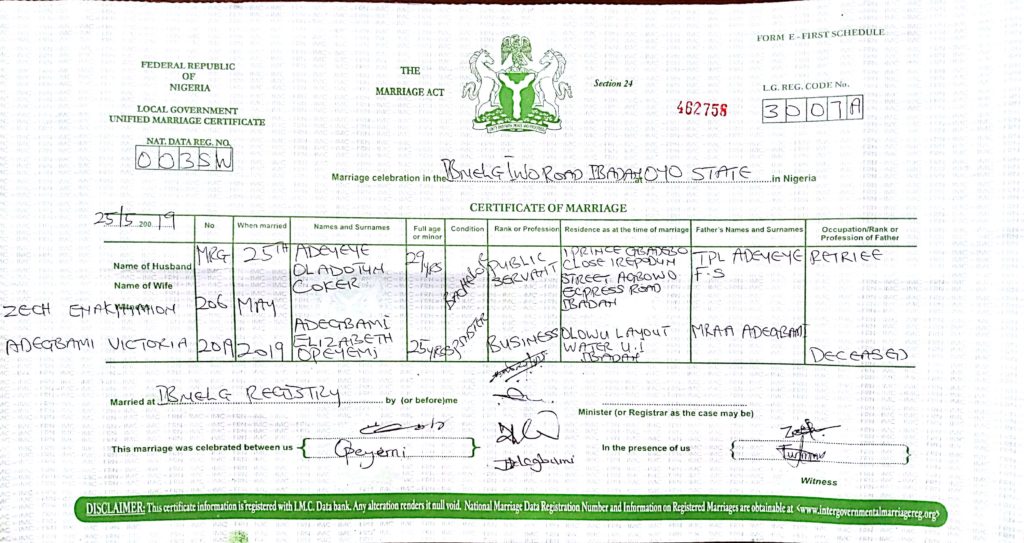 FORM E - FIRST SCHEDULE
FEDERAL REPUBLIC
OF
NIGERIA
LOCAL GOVERNMENT
UNIFIED MARRIAGE CERTIFICATE
NAT. DATA REG. NO.
003SW
THE
MARRIAGE ACT
Section 24
462758
L.G. REG. CODE No.
3007A
Marriage celebration in the IBNELG IWO ROAD IBADAN OYO STATE in Nigeria
CERTIFICATE OF MARRIAGE
25/5 2019
No
When married
Names and Surnames
Full age or minor
Condition
Rank or Profession
Residence as at the time of marriage
Father's Names and Surnames
Occupation/Rank or Profession of Father
Name of Husband
MRG
25TH
ADEYEYE
OLADOTUN
COKER
29YRS
BACHELOR
PUBLIC
SERVANT
1 PRINCE GBADEBO
CLOSE IREPODUN
STREET AGBOWO
EXPRESS ROAD
IBADAN
TPL ADEYEYE
F.S
RETRIEE
Name of Wife
Witness
ZECH
206
MAY
ADEGBAMI VICTORIA
2019
2019
ADEGBAMI
ELIZABETH
OPEYEMI
25YRS
SPINSTER
BUSINESS
OLOWU LAYOUT
WATER U.I
IBADAN
MRAA ADEGBAMI
DECEASED
Married at IBNELG REGISTRY by (or before)me
Minister (or Registrar as the case may be)
This marriage was celebrated between us
Opeyemi
In the presence of us
Witness
DISCLAIMER: This certificate information is registered with I.M.C. Data bank. Any alteration renders it null void. National Marriage Data Registration Number and Information on Registered Marriages are obtainable at <www.intergovernmentalmarriagereg.org>